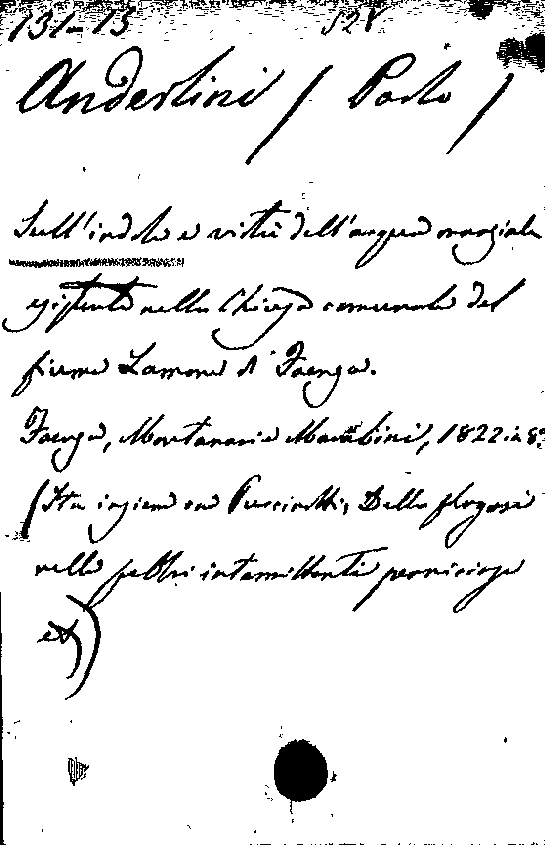 131-13 528
Anderlini (Paolo)
Sull'indole e virtù dell'acqua marziale
esistente nella Chiusa comunale del
fiume Lamone di Faenza.
Faenza, Montanari e Marabini, 1822 in 8°
(Sta insieme con Puccinotti, Delle flogosi
nelle febbri intermittenti perniciose